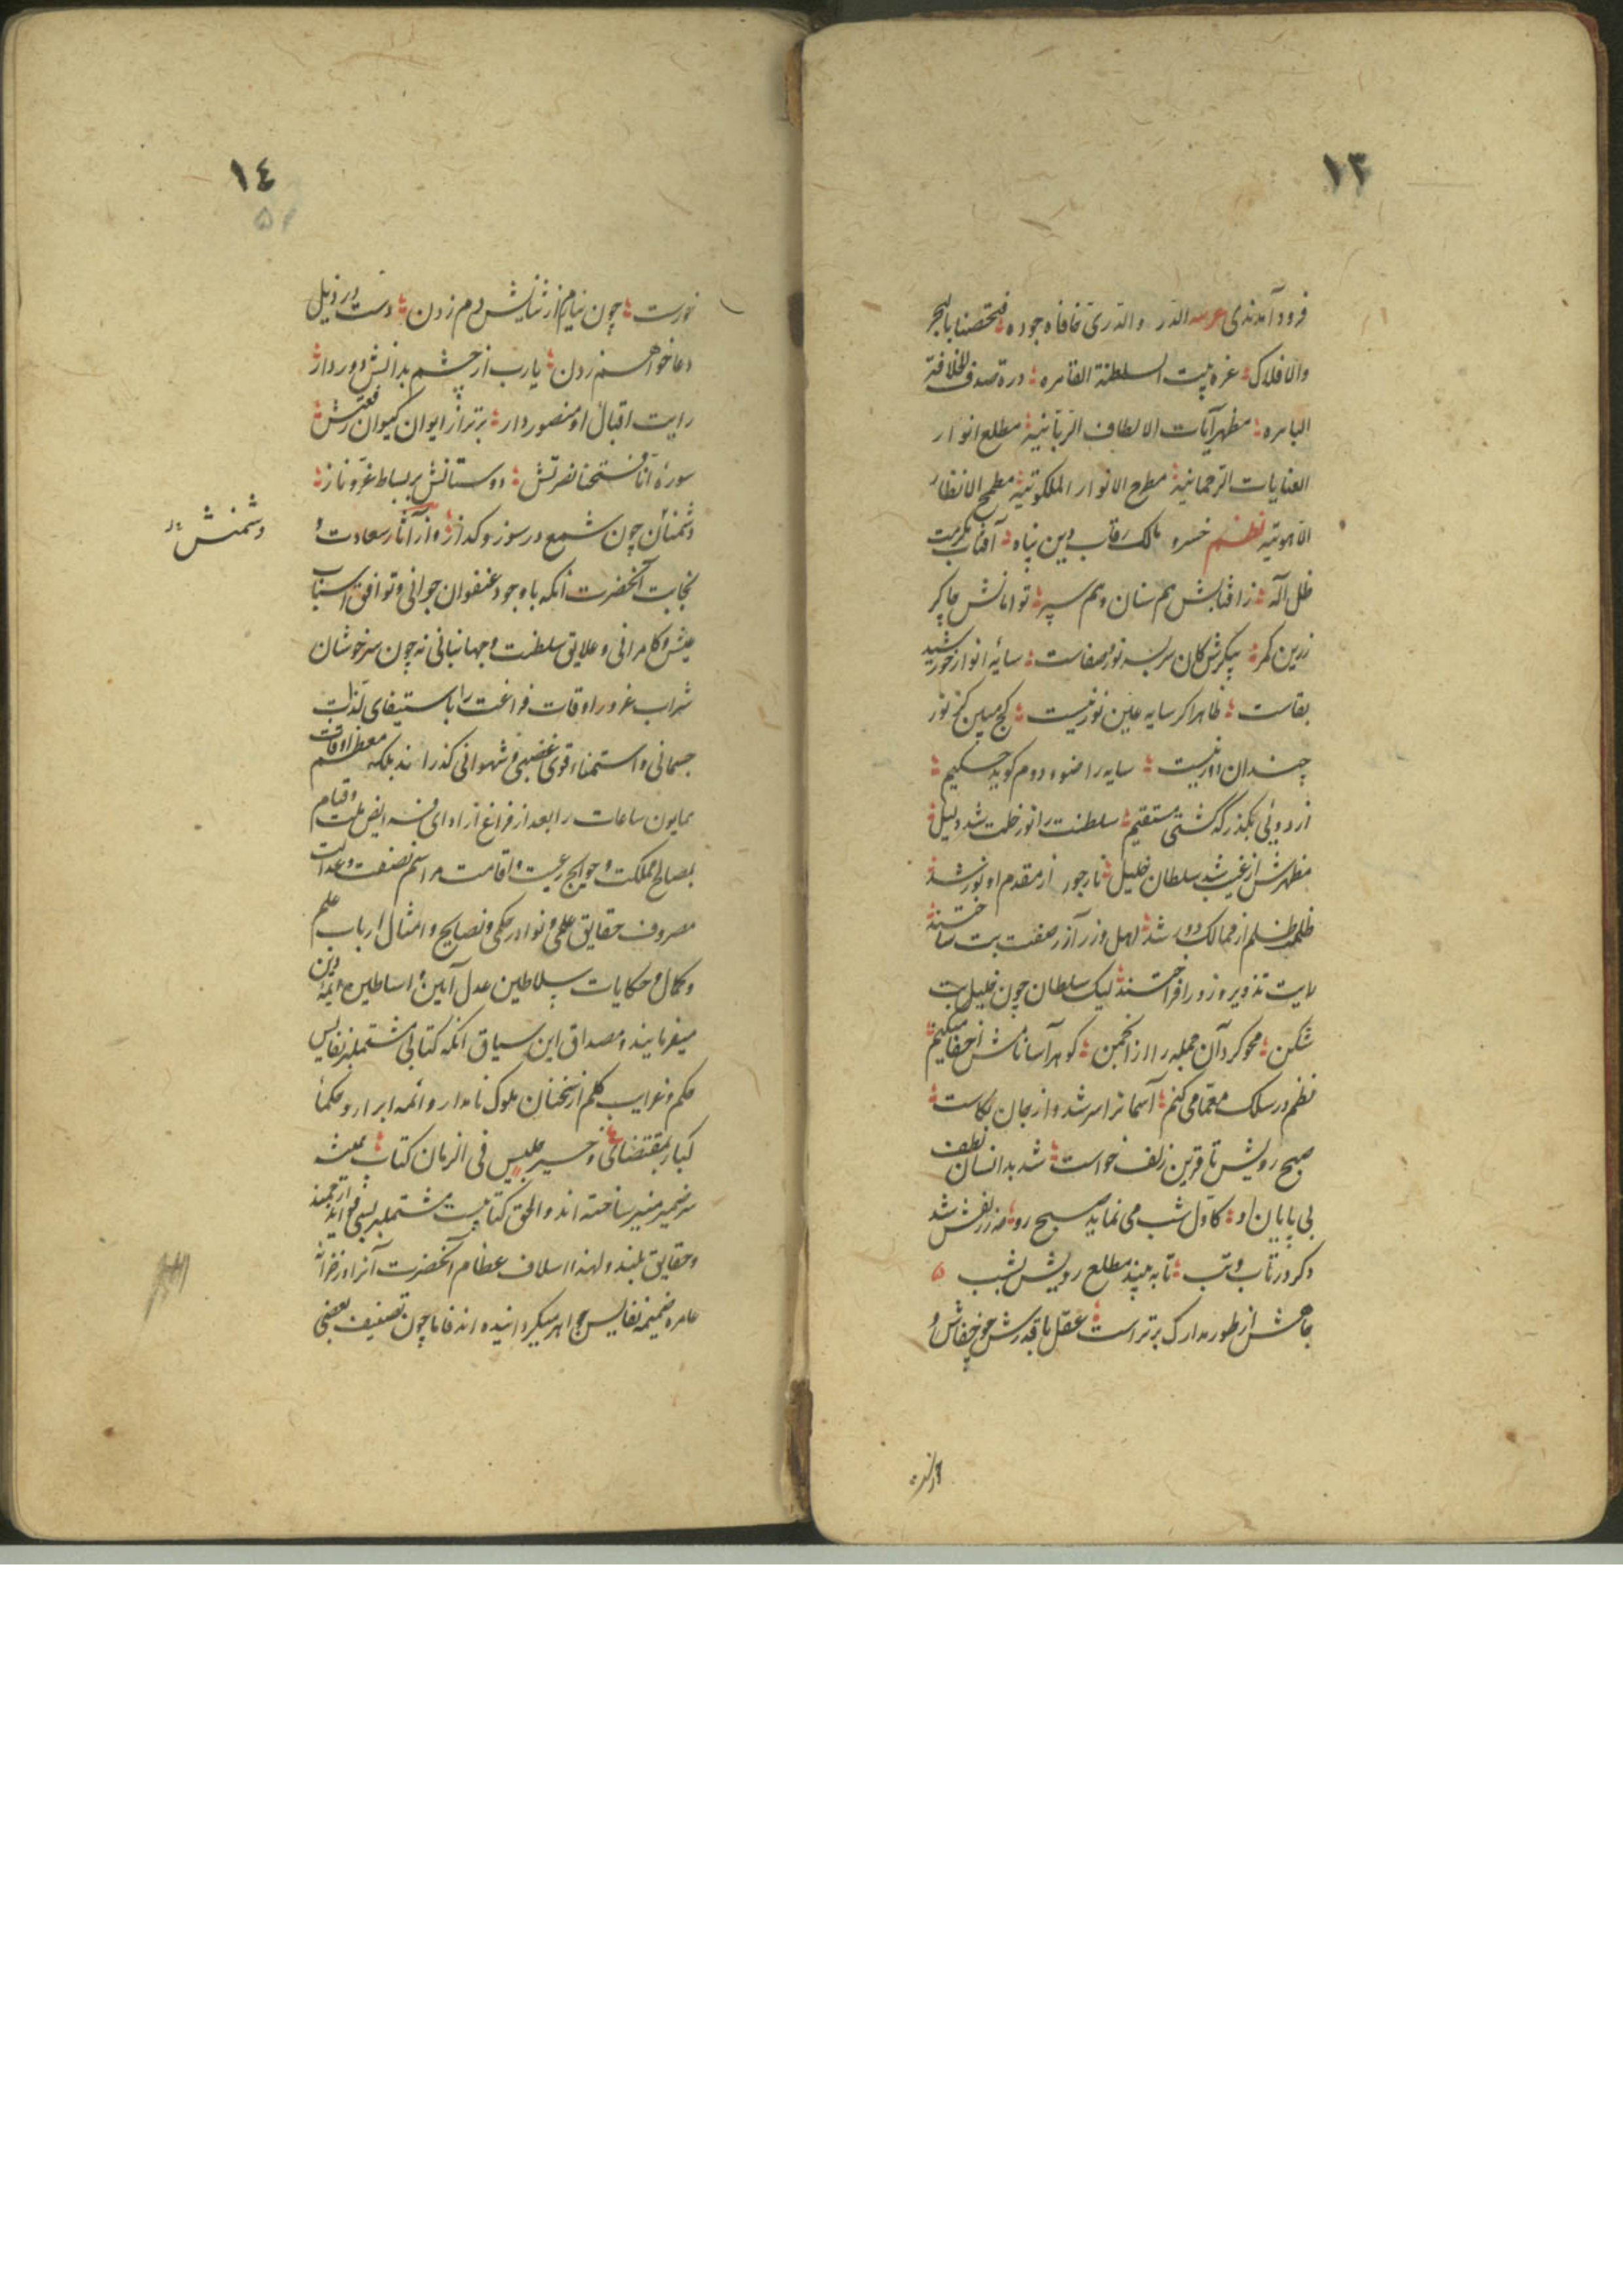 ١٣
فرود آمدندی عربیه الدر والدری خافاه جوده فتحصنا بالبحر
والافلاک غره جبهت السلطنة القاهره درة صدف الخلافة
الباهره مظهر آیات الالطاف الربانیة مطلع انوار
العنایات الرحمانیة مطرح الانوار الملکوتیة مطمح الانظار
اللاهوتیه نظم خسرو مالک رقاب دین پناه آفتاب مکرمت
ظل اله ز آفتابش هم سنان و هم سپر توامانش چاکر
زرین کمر پیکرش کان سربسر نور و صفاست سایهٔ انوار خورشید
بقاست ظاهرا کر سایه عین نور نیست کج مبین کز نور
چندان دور نیست سایه را ضوء دوم کوید حکیم
از دوئی بکذر که کشتی مستقیم سلطنت را نور ظلمت شد دلیل
مظهرش از غیب شد سلطان خلیل نار جور از مقدم او نور شد
ظلمت ظلم از ممالک دور شد اهل وزر آزر صفت بت ساختند
رایت تذویر و زور افراختند لیک سلطان چون خلیل بت
شکن محو کرد آن جمله را از انجمن کوهر آسا نامش اخفا میکنم
نظم در سلک معما می کنم آسمانرا سر شد و از جان بکاست
صبح رویش تا قرین زلف خواست شد بدانسان لطف
بی پایان او کاول شب می نماید صبح رو مه ز زلفش شد
دکر در تاب و تب تا به بیند مطلع رویش بشب
جاهش از طور مدارک برتر است عقل با قدرش چو خفاش و
١٤
خورست چون نیارم از ثنایش دم زدن دست در ذیل
دعا خواهم زدن یارب از چشم بدانش دور دار
رایت اقبال او منصور دار برتر از ایوان کیوان رفعتش
سورهٔ انا فتحنا نصرتش دوستانش بر بساط عز و ناز
دشمنان چون شمع در سوز و کداز و از آثار سعادت و
دشمنش
نجابت آنحضرت انکه با وجود عنفوان جوانی و توافق اسباب
عیش و کامرانی و علایق سلطنت و جهانبانی نه چون سرخوشان
شراب غرور اوقات فراغت را باستیفای لذات
جسمانی و استمناء قوی غضبی و شهوانی کذراند بلکه معظم اوقات
همایون ساعات را بعد از فراغ از ادای فرایض ملت و قیام
بمصالح مملکت و حوایج رعیت و اقامت مراسم نصفت و عدالت
مصروف حقایق علمی و نوادر حکمی و نصایح و امثال ارباب علم
و کمال و حکایات سلاطین عدل آیین و اساطین ائمهٔ دین
میفرمایند و مصداق این سیاق انکه کتابی مشتمل بر نفایس
حکم و غرایب کلم از سخنان ملوک نامدار و ائمه ابرار و حکماء
کبار بمقتضای و خیر جلیس فی الزمان کتاب همیشه
سمیر ضمیر منیر ساخته اند و الحق کتابیست مشتمل بر بسی فواید ارجمند
و حقایق بلند و لهذا اسلاف عظام آنحضرت آنرا در خزانه
عامره ضمیمه نفایس جواهر میکردانیده اند فاما چون تصنیف بعضی